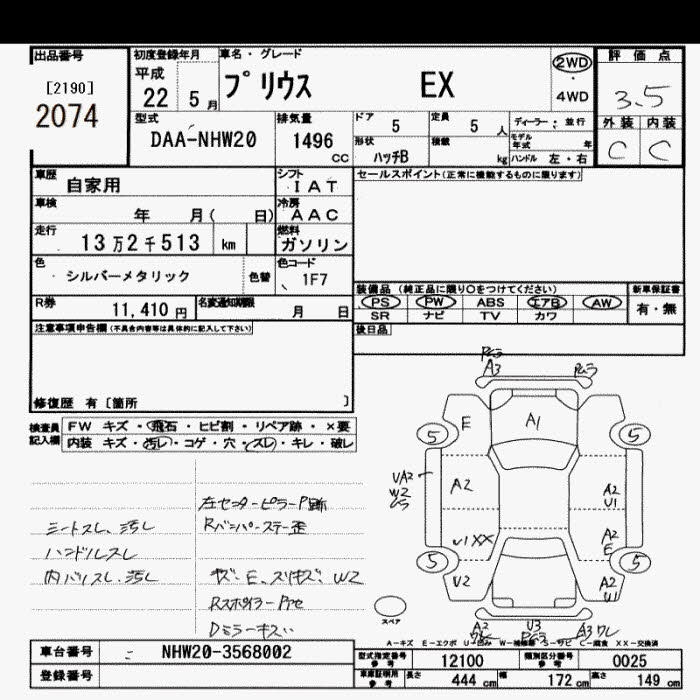 出品番号
[2190]
2074
初度登録年月
平成
22 5 月
車名・グレード
プリウス EX
2WD
・
4WD
評価点
3.5
外装 内装
C C
型式
DAA-NHW20
排気量
1496
CC
ドア
5
定員
5 人
形状
ハッチB
積載
kg
ディーラー ; 並行
モデル年式 年
ハンドル 左・右
車歴
自家用
シフト
IAT
セールスポイント(正常に機能するものに限ります)
車検
年 月( 日)
冷房
AAC
走行
13万2千513 km
燃料
ガソリン
色
シルバーメタリック
色替
色コード
1F7
R券
11,410 円
名変通知期限
月 日
装備品 (純正品に限り○をつけてください)
PS PW ABS エアB AW
SR ナビ TV カワ
新車保証書
有・無
後日品
注意事項申告欄(不具合内容等は具体的に記入して下さい)
修復歴 有[箇所 ]
検査員記入欄
FW キズ・飛石・ヒビ割・リペア跡・×要
内装 キズ・汚レ・コゲ・穴・スレ・キレ・破レ
シートスレ、汚レ
ハンドルスレ
内バリスレ、汚レ
左センターピラーP跡
Rバンパーステー歪
キズ、E、スリキズ、W2
Dミラーキズ
A3
E
A1
5
5
A2
W2
A2
U1
A2
E
U2
A2
U1
5
5
スペア
A2
U3
A3 ワレ
A-キズ E-エクボ U-凹み W-補修跡 S-サビ C-腐食 XX-交換済
車台番号
NHW20-3568002
登録番号
型式指定番号
参考
12100
類別区分番号
参考
0025
車庫証明用
参考
長さ 444 cm 幅 172 cm 高さ 149 cm